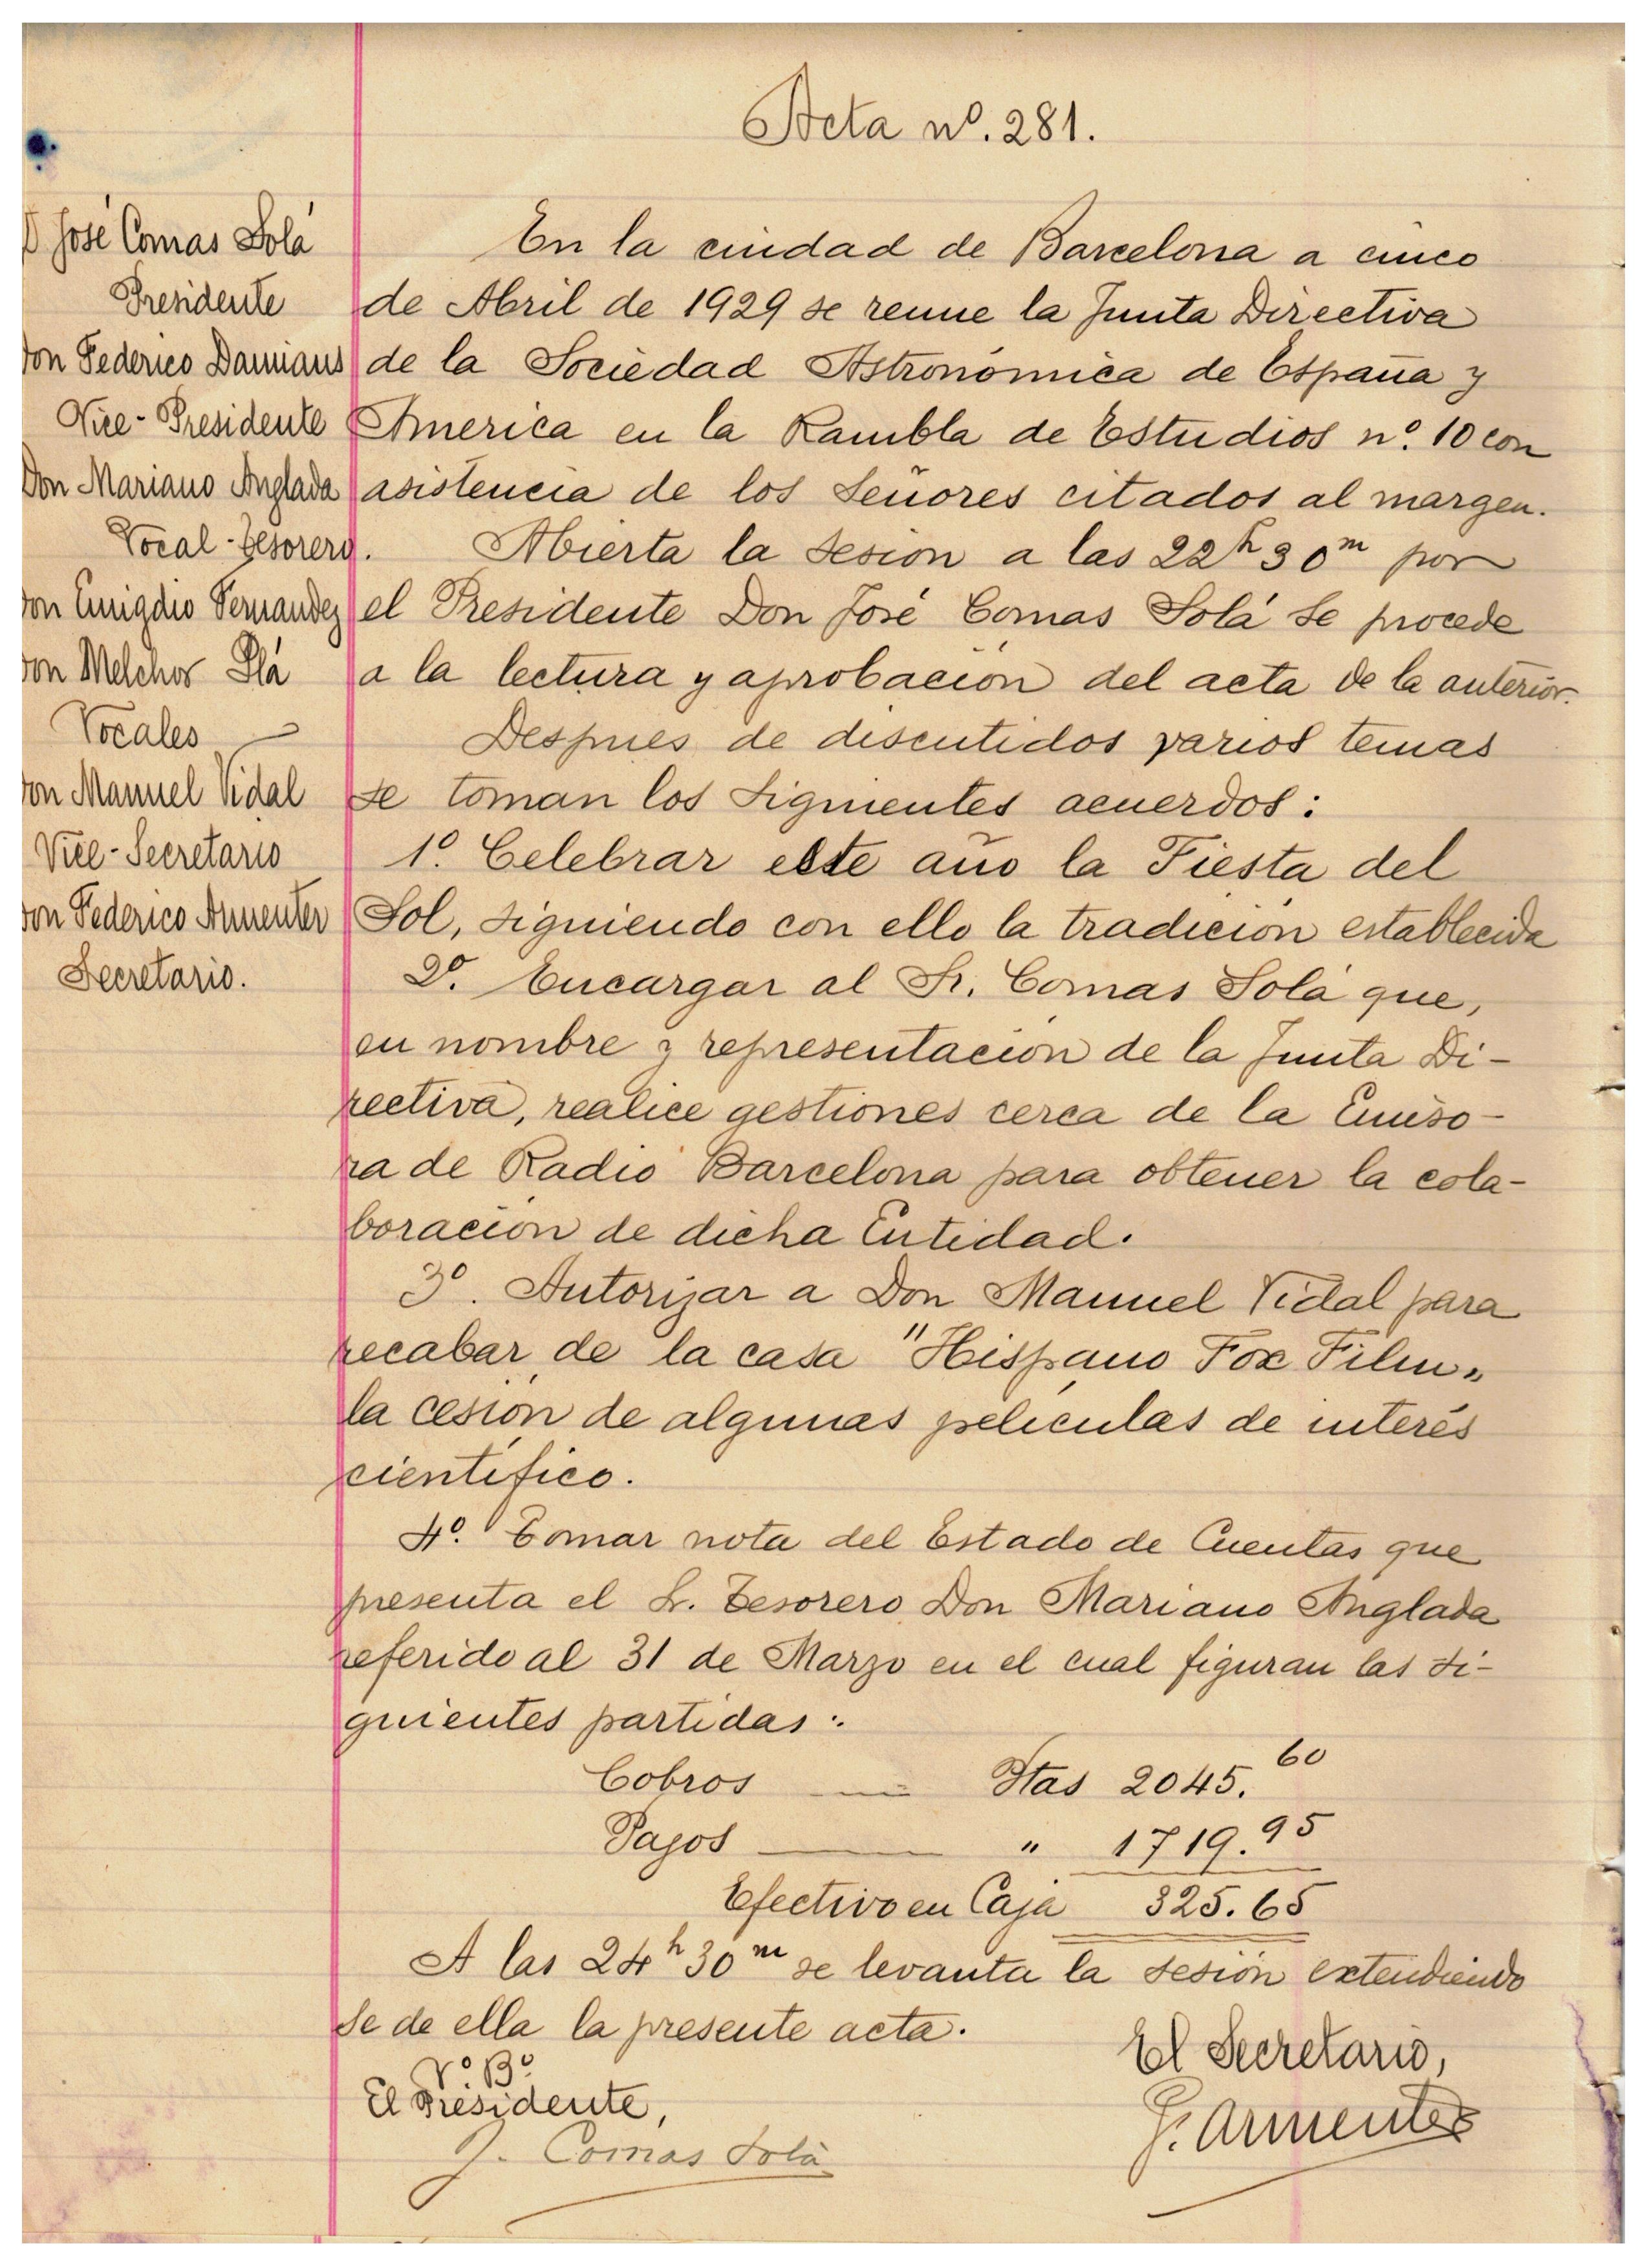 Acta nº. 281.
D José Comas Solá
Presidente
Don Federico Damians
Vice-Presidente
Don Mariano Anglada
Vocal-Tesorero.
Don Emigdio Fernandez
Don Melchor Plá
Vocales
Don Manuel Vidal
Vice-Secretario
Don Federico Armenter
Secretario.
En la ciudad de Barcelona a cinco
de Abril de 1929 se reune la Junta Directiva
de la Sociedad Astronómica de España y
America en la Rambla de Estudios nº. 10 con
asistencia de los Señores citados al margen.
Abierta la sesión a las 22h 30m por
el Presidente Don José Comas Solá se procede
a la lectura y aprobación del acta de la anterior.
Despues de discutidos varios temas
se toman los siguientes acuerdos:
1º. Celebrar este año la Fiesta del
Sol, siguiendo con ello la tradición establecida
2º. Encargar al Sr. Comas Solá que,
en nombre y representación de la Junta Di-
rectiva, realice gestiones cerca de la Emiso-
ra de Radio Barcelona para obtener la cola-
boración de dicha Entidad.
3º. Autorizar a Don Manuel Vidal para
recabar de la casa "Hispano Fox Film"
la cesión de algunas películas de interés
científico.
4º. Tomar nota del Estado de Cuentas que
presenta el Sr. Tesorero Don Mariano Anglada
referido al 31 de Marzo en el cual figuran las si-
guientes partidas:
Cobros — Ptas 2045.60
Pagos — " 1719.95
Efectivo en Caja 325.65
A las 24h 30m se levanta la sesión extendiendo
se de ella la presente acta.
Vº. Bº.
El Presidente,
J. Comas Solá
El Secretario,
F. Armenter